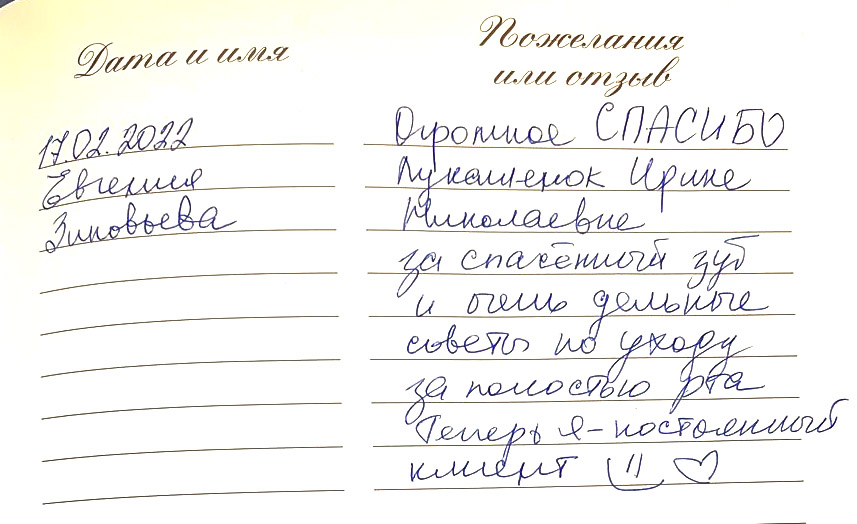 Дата и имя
Пожелания
или отзыв
17.02.2022
Евгения
Зиновьева
Огромное СПАСИБО
Лукашенок Ирине
Николаевне
за спасённый зуб
и очень дельные
советы по уходу
за полостью рта
Теперь я - постоянный
клиент